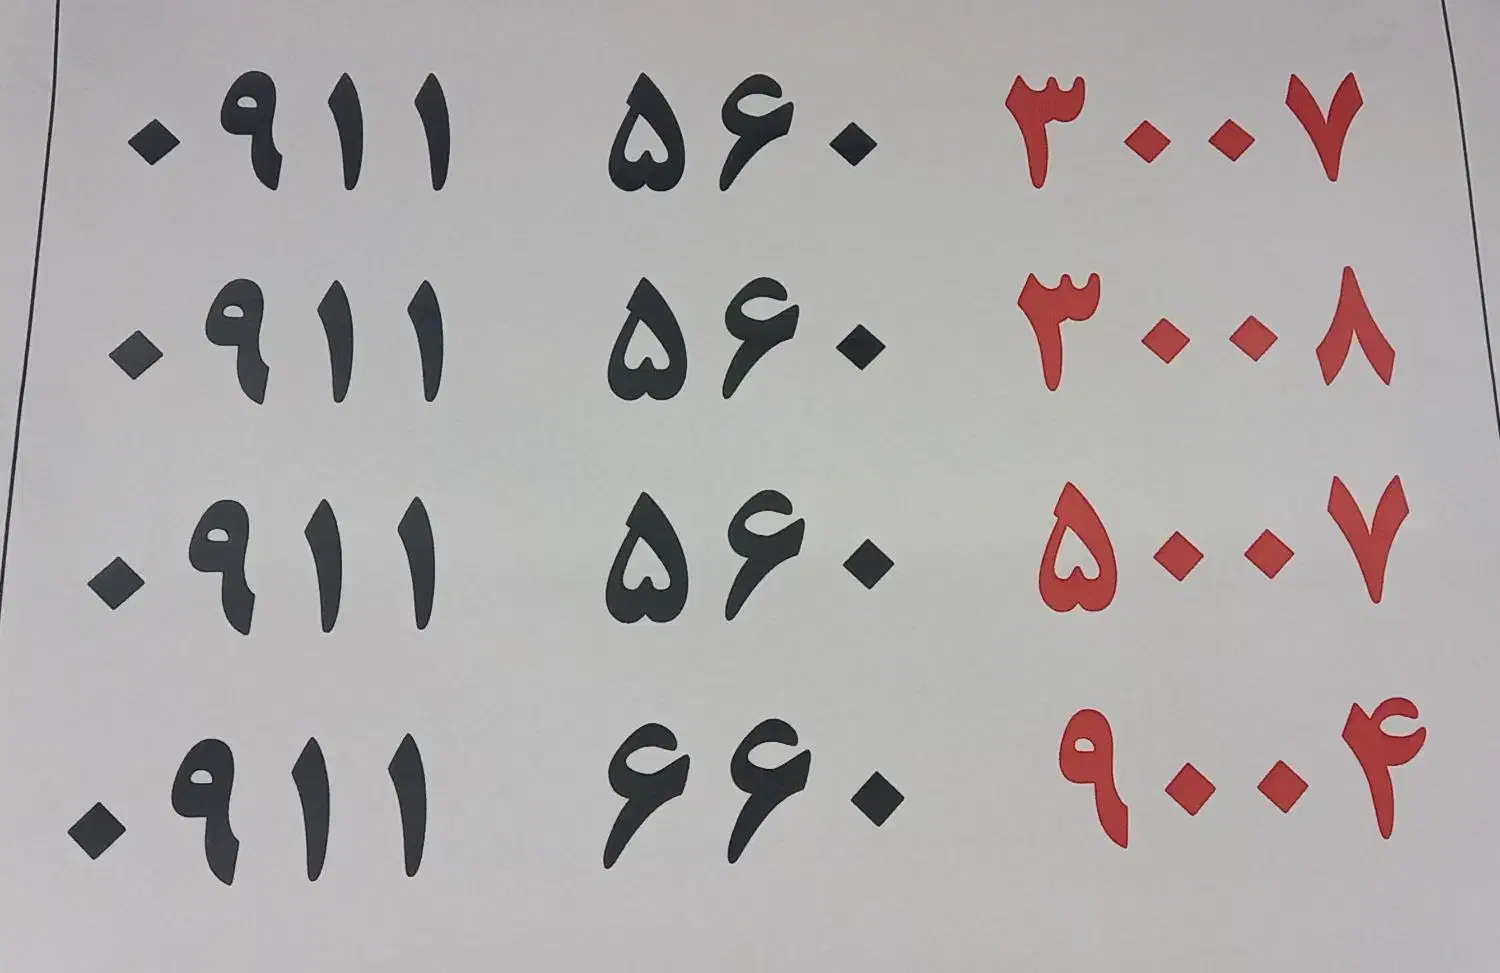 ۰۹۱۱ ۵۶۰ ۳۰۰۷
۰۹۱۱ ۵۶۰ ۳۰۰۸
۰۹۱۱ ۵۶۰ ۵۰۰۷
۰۹۱۱ ۶۶۰ ۹۰۰۴